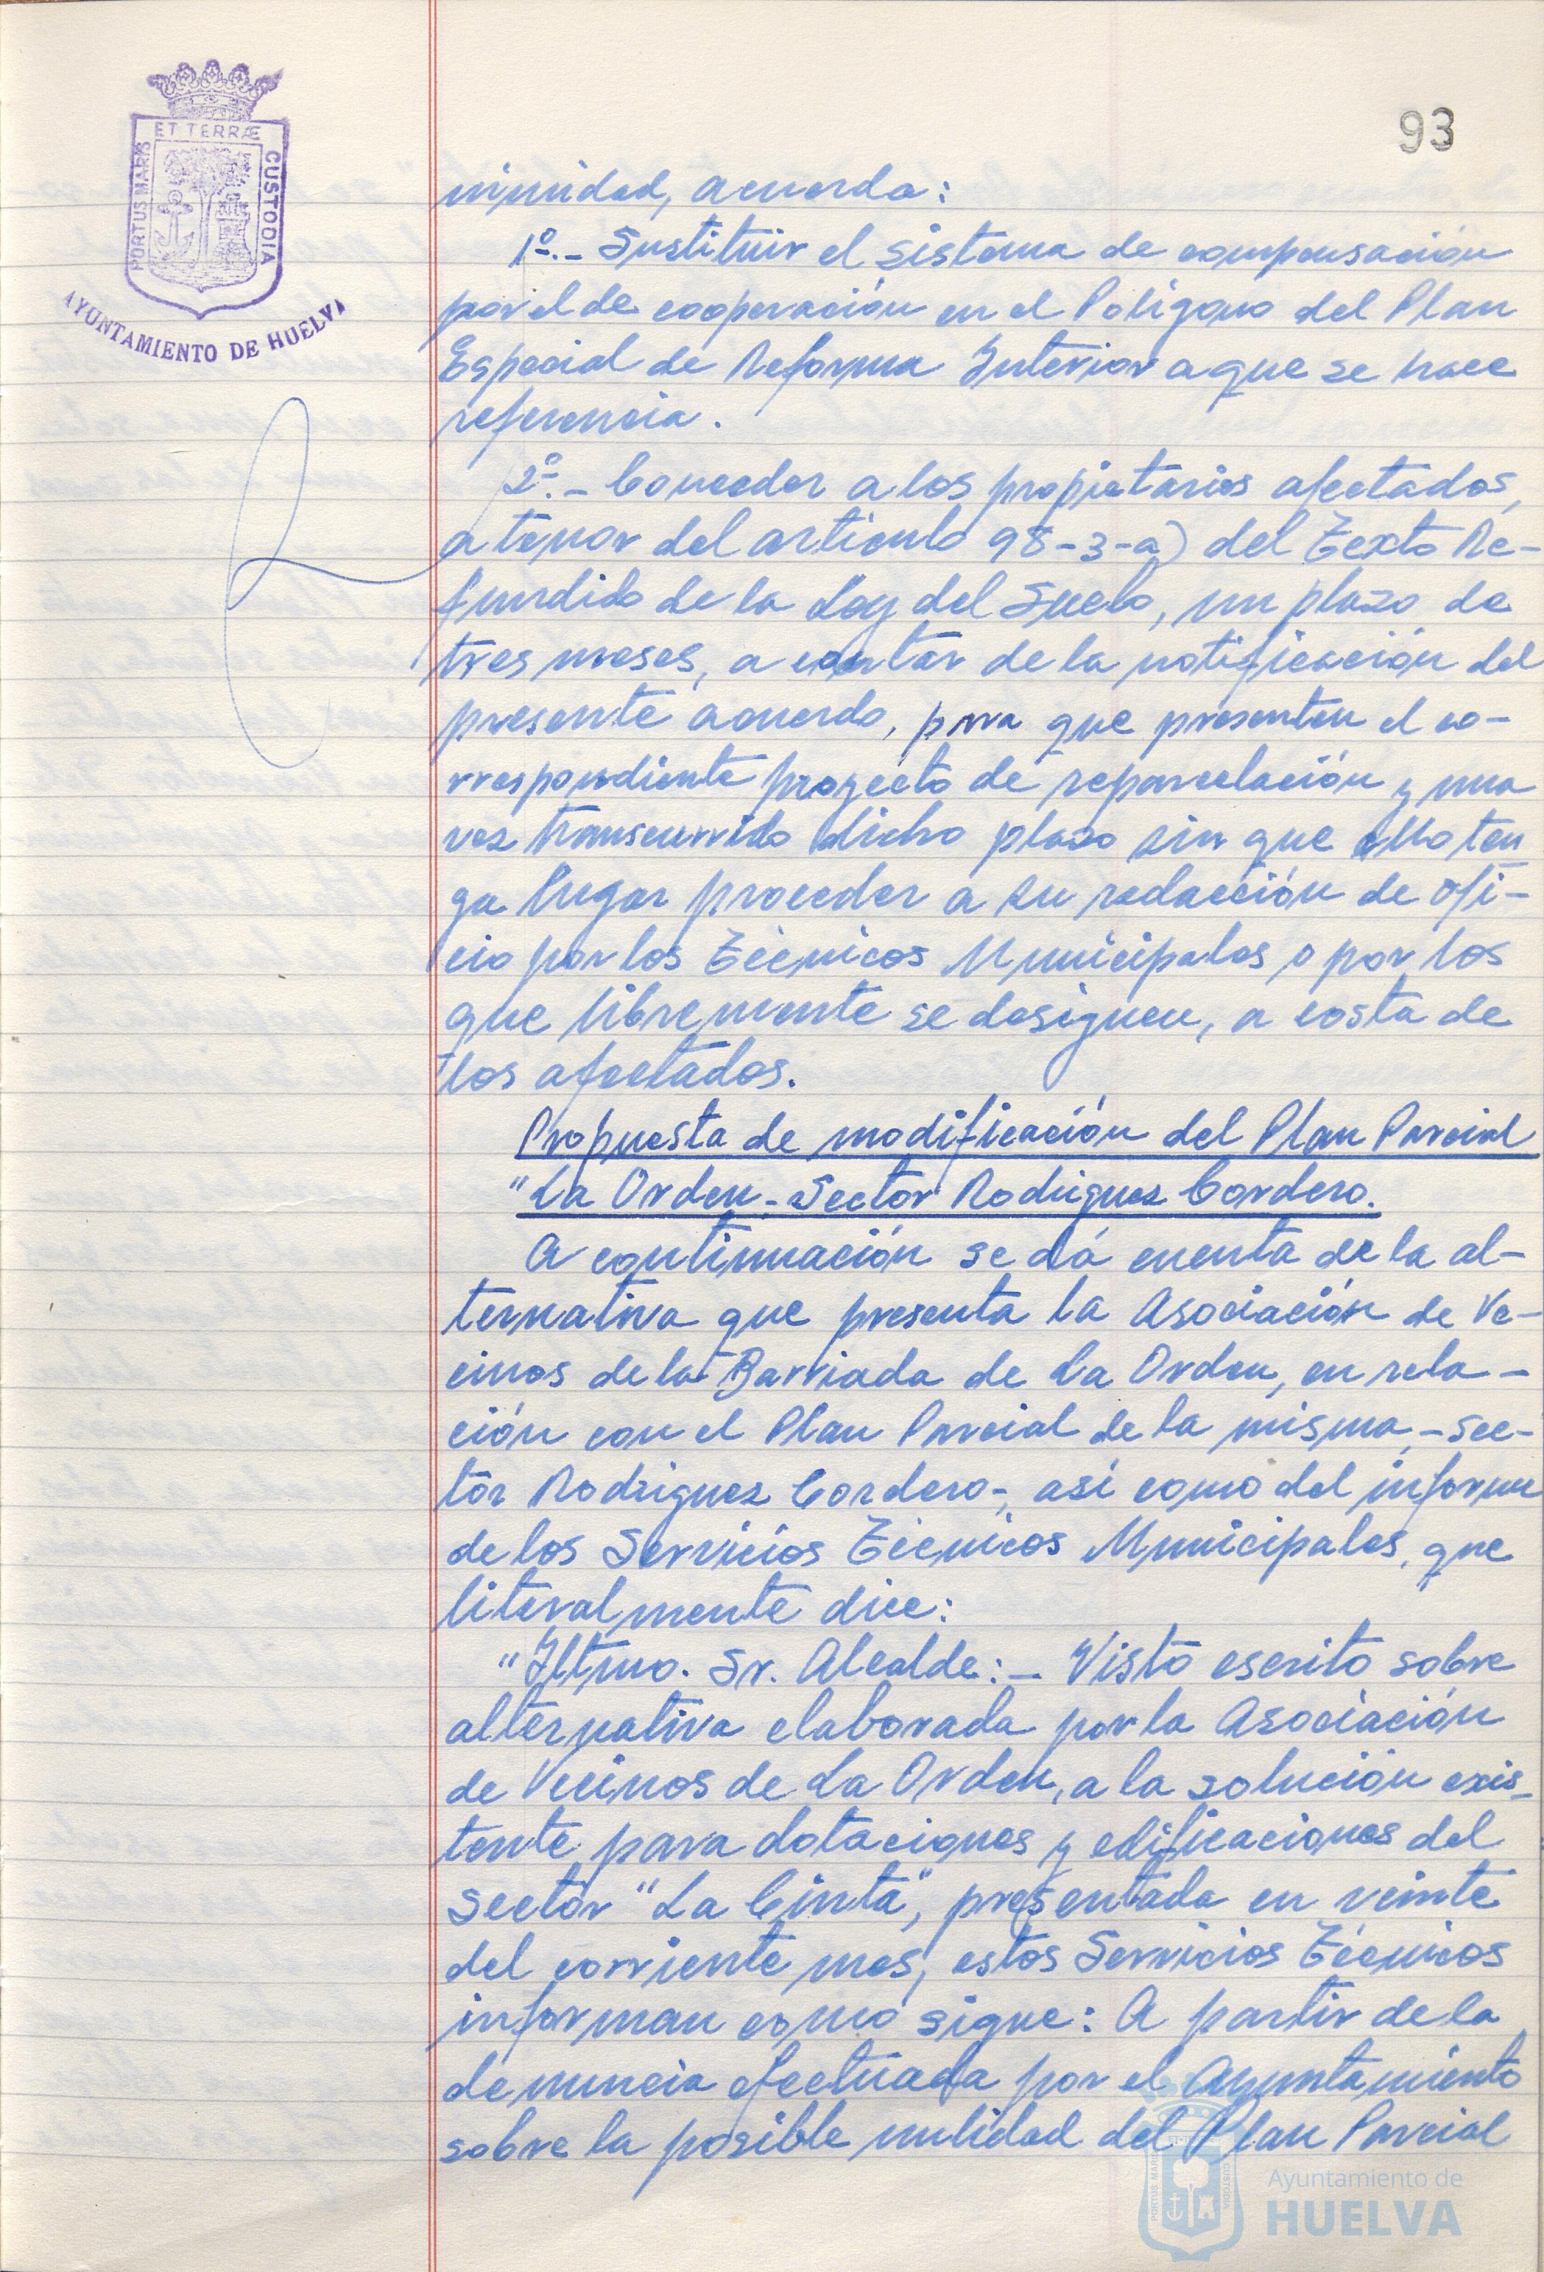 93
ET TERRÆ
PORTUS MARIS
CUSTODIA
AYUNTAMIENTO DE HUELVA
nimidad, acuerda:
1º.- Sustituir el sistema de compensación
por el de cooperación en el Polígono del Plan
Especial de Reforma Interior a que se hace
referencia.
2º.- Conceder a los propietarios afectados,
a tenor del artículo 98-3-a) del Texto Re-
fundido de la Ley del Suelo, un plazo de
tres meses, a contar de la notificación del
presente acuerdo, para que presenten el co-
rrespondiente proyecto de reparcelación y una
vez transcurrido dicho plazo sin que ello ten
ga lugar proceder a su redacción de ofi-
cio por los Técnicos Municipales o por los
que libremente se designen, a costa de
los afectados.
Propuesta de modificación del Plan Parcial
"La Orden-Sector Rodriguez Cordero.
A continuación se dá cuenta de la al-
ternativa que presenta la Asociación de Ve-
cinos de la Barriada de La Orden, en rela-
ción con el Plan Parcial de la misma,-Sec-
tor Rodriguez Cordero-, así como del informe
de los Servicios Técnicos Municipales, que
literalmente dice:
"Iltmo. Sr. Alcalde:- Visto escrito sobre
alternativa elaborada por la Asociación
de Vecinos de La Orden, a la solución exis-
tente para dotaciones y edificaciones del
sector "La Cinta", presentada en veinte
del corriente mes, estos Servicios Técnicos
informan como sigue: A partir de la
denuncia efectuada por el Ayuntamiento
sobre la posible nulidad del Plan Parcial
Ayuntamiento de
HUELVA